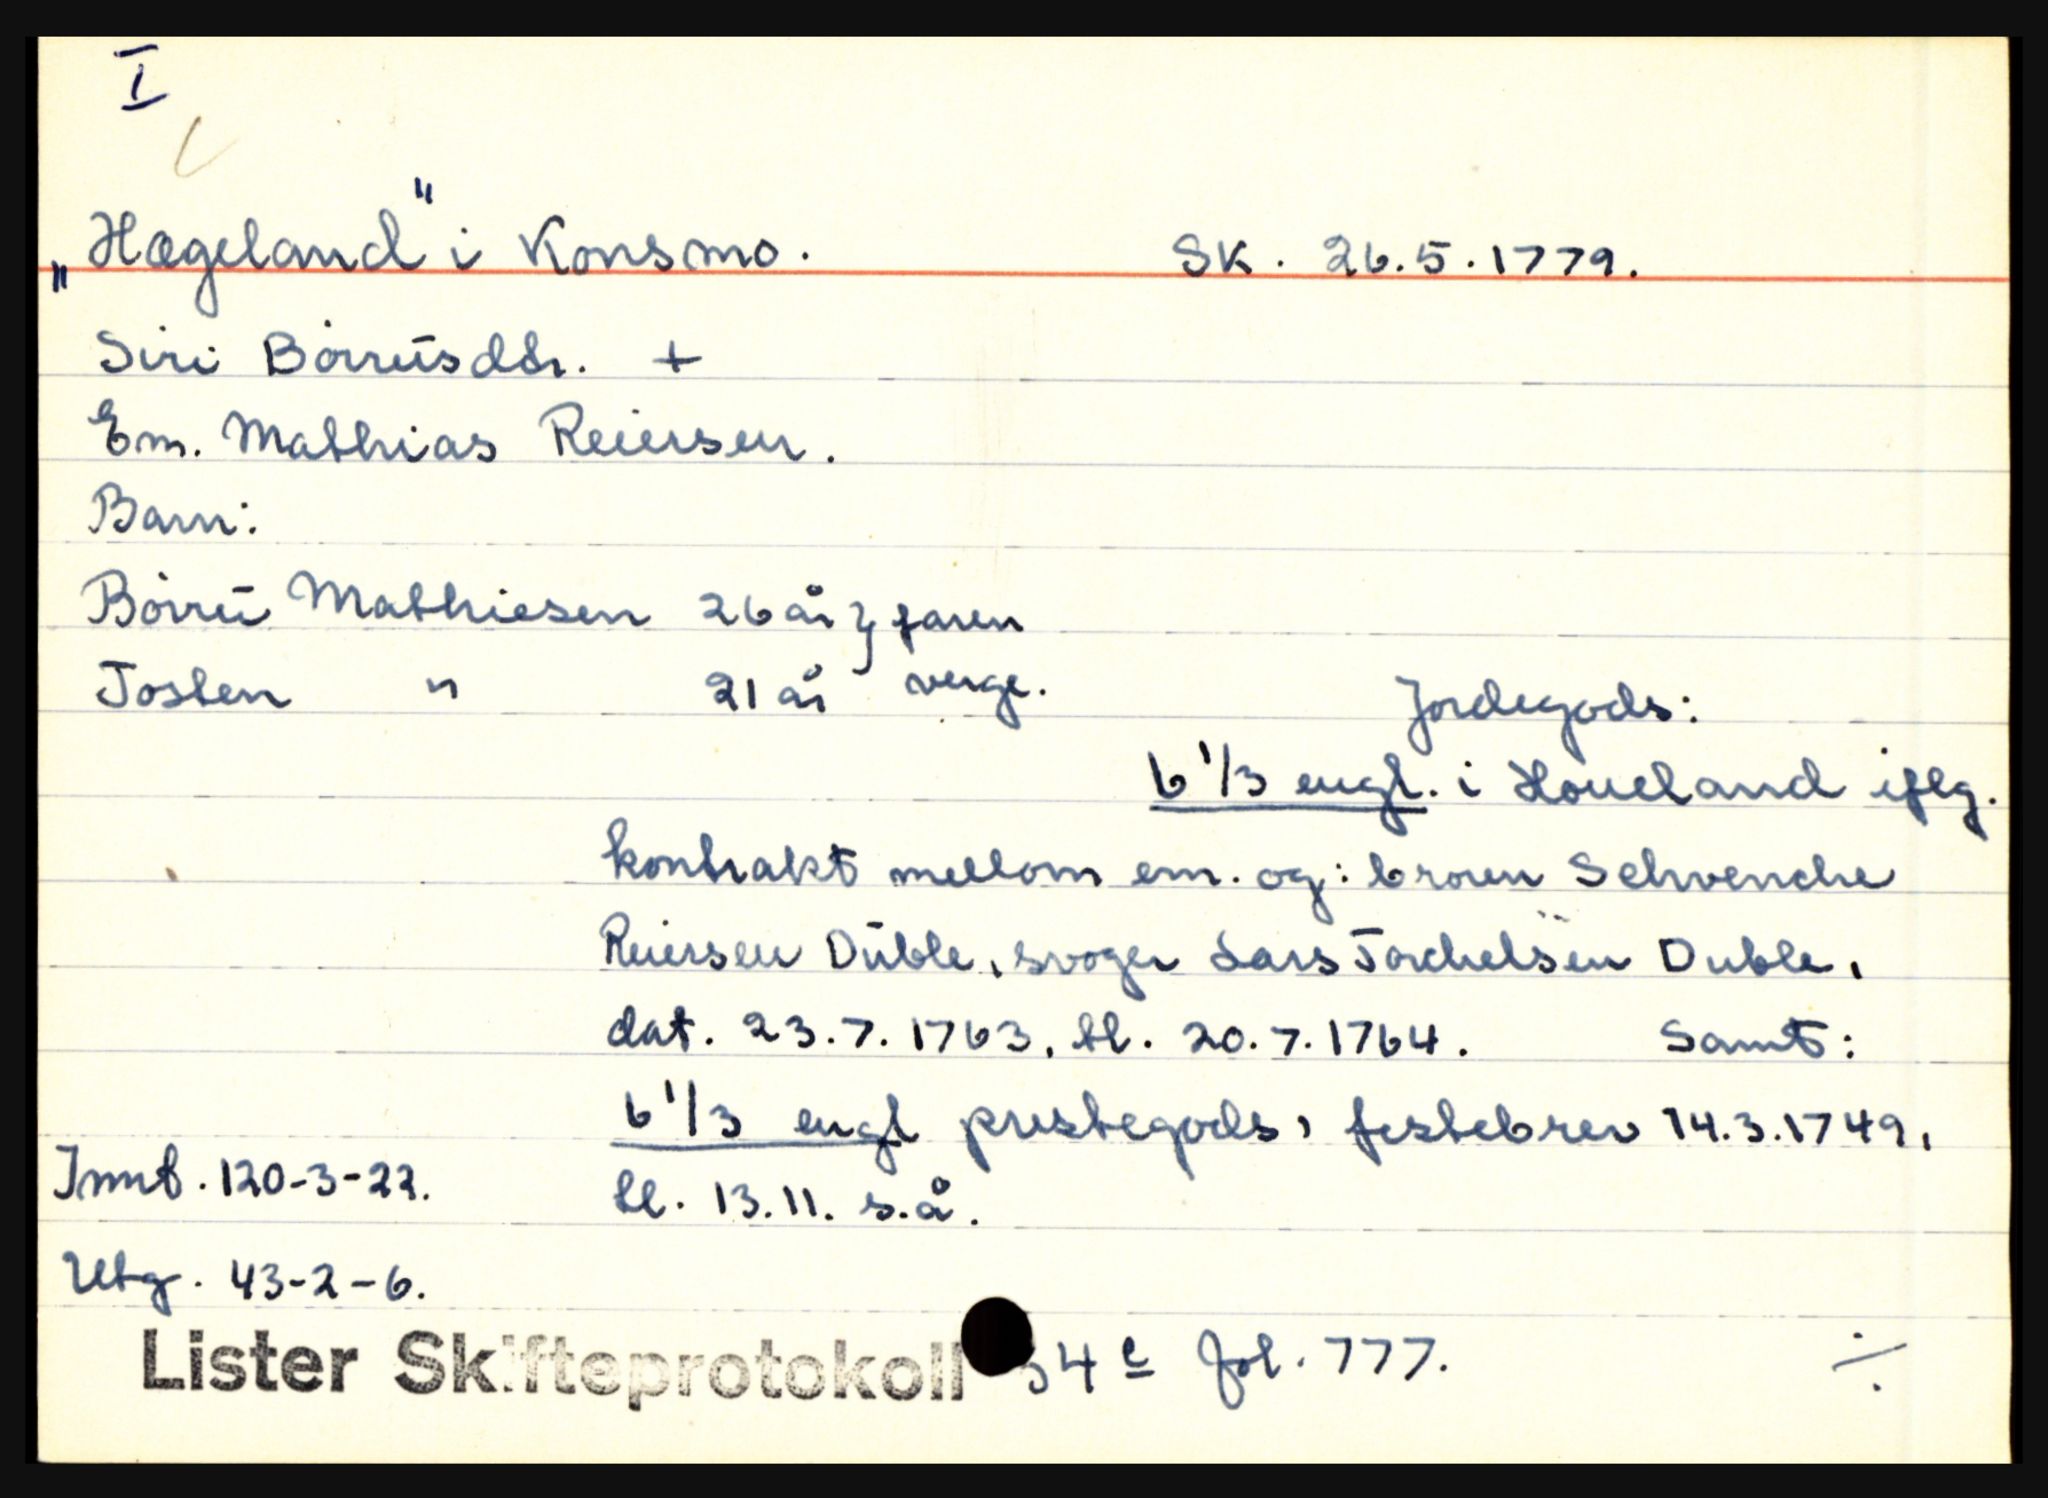 I
„Hægeland" i Konsmo. SK. 26.5.1779.
Siri Børrūsdtr. +
Em. Mathias Reiersen.
Barn:
Børrū Mathiesen 26 år } faren
Josten " 21 år verge.
Jordegods:
6 1/3 engl. i Houeland iflg.
kontrakt mellom em. og: broren Schvenche
Reiersen Dūble, svoger Lars Torchelsen Duble,
dat. 23.7.1763, tl. 20.7.1764. Samt:
6 1/3 engl prestegods, festebrev 14.3.1749,
Innt. 120-3-22. tl. 13.11. s.å.
Utg. 43-2-6.
Lister Skifteprotokoll 4 e fol. 777. ÷